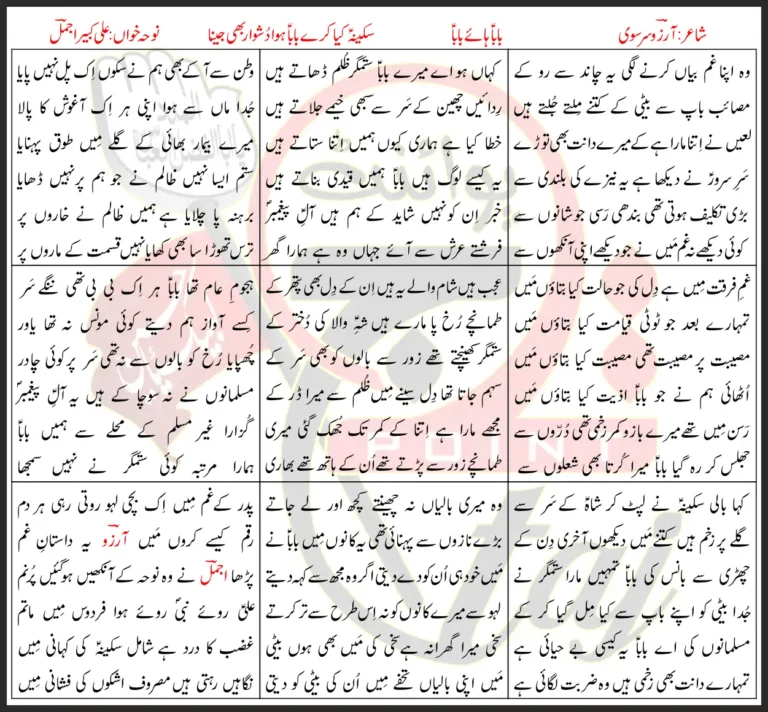 شاعر: آرزو سرسوی
باباؑ ہائے باباؑ
سکینہؑ کیا کرے باباؑ ہوا دُشوار بھی جینا
نوحہ خواں: علی کبیر اجمل
وہ اپنا غم بیاں کرنے لگی یہ چاند سے رو کے
مصائب باپ سے بیٹی کے کتنے مِلتے جُلتے ہیں
لعیں نے اِتنا مارا ہے کے میرے دانت بھی توڑے
سَرِ سرورؑ نے دیکھا ہے یہ نیزے کی بلندی سے
بڑی تکلیف ہوتی تھی بندھی رَسی جو شانوں سے
کوئی دیکھے نہ غم مَیں نے جو دیکھے اپنی آنکھوں سے
کہاں ہو اے میرے باباؑ ستمگر ظلم ڈھاتے ہیں
رِدائیں چھین کے سَر سے سبھی خیمے جلاتے ہیں
خطا کیا ہے ہماری کیوں ہمیں اِتنا ستاتے ہیں
یہ کیسے لوگ ہیں باباؑ ہمیں قیدی بناتے ہیں
خبر اِن کو نہیں شاید کے ہم ہیں آلِ پیغمبرؐ
فرشتے عرش سے آئے جہاں وہ ہے ہمارا گھر
وطن سے آ کے بھی ہم نے سکوں اِک پل نہیں پایا
جُدا ماں سے ہوا اپنی ہر اِک آغوش کا پالا
میرے بیمار بھائی کے گلے مِیں طوق پہنایا
ستم ایسا نہیں ظالم نے جو ہم پر نہیں ڈھایا
برہنہ پا چلایا ہے ہمیں ظالم نے خاروں پر
ترس تھوڑا سا بھی کھایا نہیں قسمت کے ماروں پر
غمِ فرقت مِیں ہے دِل کی جو حالت کیا بتاؤں مَیں
تمہارے بعد جو ٹوٹی قیامت کیا بتاؤں مَیں
مصیبت پر مصیبت تھی مصیبت کیا بتاؤں مَیں
اُٹھائی ہم نے جو باباؑ اذیت کیا بتاؤں مَیں
رَسن مِیں تھے میرے بازو کمر زخمی تھی دُرّوں سے
جھلس کر رہ گیا باباؑ میرا کُرتا بھی شعلوں سے
عجب ہیں شام والے یہ ہیں اِن کے دِل بھی پتھر کے
طمانچے رُخ پا مارے ہیں شہِؑ والا کی دُختر کے
ستمگر کھینچتے تھے زور سے بالوں کو بھی سَر کے
سہم جاتا تھا دِل سینے مِیں ظلم سے میرا ڈر کے
مجھے مارا ہے اِتنا کے کمر تک جھک گئی میری
طمانچے زور سے پڑتے تھے اُن کے ہاتھ تھے بھاری
ہجومِ عام تھا باباؑ ہر اِک بی بی تھی ننگے سَر
کِسے آواز ہم دیتے کوئی مونس نہ تھا یاور
چُھپایا رُخ کو بالوں سے نہ تھی سَر پر کوئی چادر
مسلمانوں نے نہ سوچا کے ہیں یہ آلِ پیغمبرؐ
گُزارا غیر مسلم کے محلے سے ہمیں باباؑ
ہمارا مرتبہ کوئی ستمگر نے نہیں سمجھا
کہا بالی سکینہؑ نے لپٹ کر شاہؑ کے سَر سے
گلے پر زخم ہیں کتنے مَیں دیکھوں آخری دِن کے
چھڑی سے بانس کی باباؑ تمہیں مارا ستمگر نے
جُدا بیٹی کو اپنے باپ سے کیا مِل گیا کر کے
مسلمانوں کی اے باباؑ یہ کیسی بے حیائی ہے
تمہارے دانت بھی زخمی ہیں وہ ضربت لگائی ہے
وہ میری بالیاں نہ چھینتے کچھ اور لے جاتے
بڑے نازوں سے پہنائی تھی یہ کانوں مِیں باباؑ نے
مَیں خود ہی اُن کو دے دیتی اگر وہ مجھ سے کہہ دیتے
لہو سے میرے کانوں کو نہ اِس طرح سے تر کرتے
سخی میرا گھرانہ ہے سخی کی مَیں بھی ہوں بیٹی
مَیں اپنی بالیاں تحفے مِیں اُن کی بیٹی کو دیتی
پدر کے غم مِیں اِک بچی لہو روتی رہی ہر دم
رقم کیسے کروں مَیں آرزو یہ داستانِ غم
پڑھا اجمل نے وہ نوحہ کے آنکھیں ہوگئیں پُرنم
علیؑ روئے نبیؐ روئے ہوا فردوس مِیں ماتم
غضب کا درد ہے شامل سکینہؑ کی کہانی مِیں
نگاہیں رہتی ہیں مصروف اشکوں کی فشانی مِیں